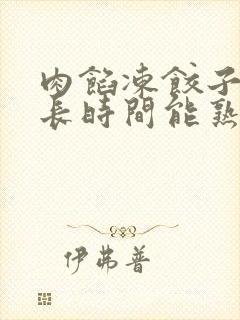 肉餡凍餃子
長時間能熟
伊弗普